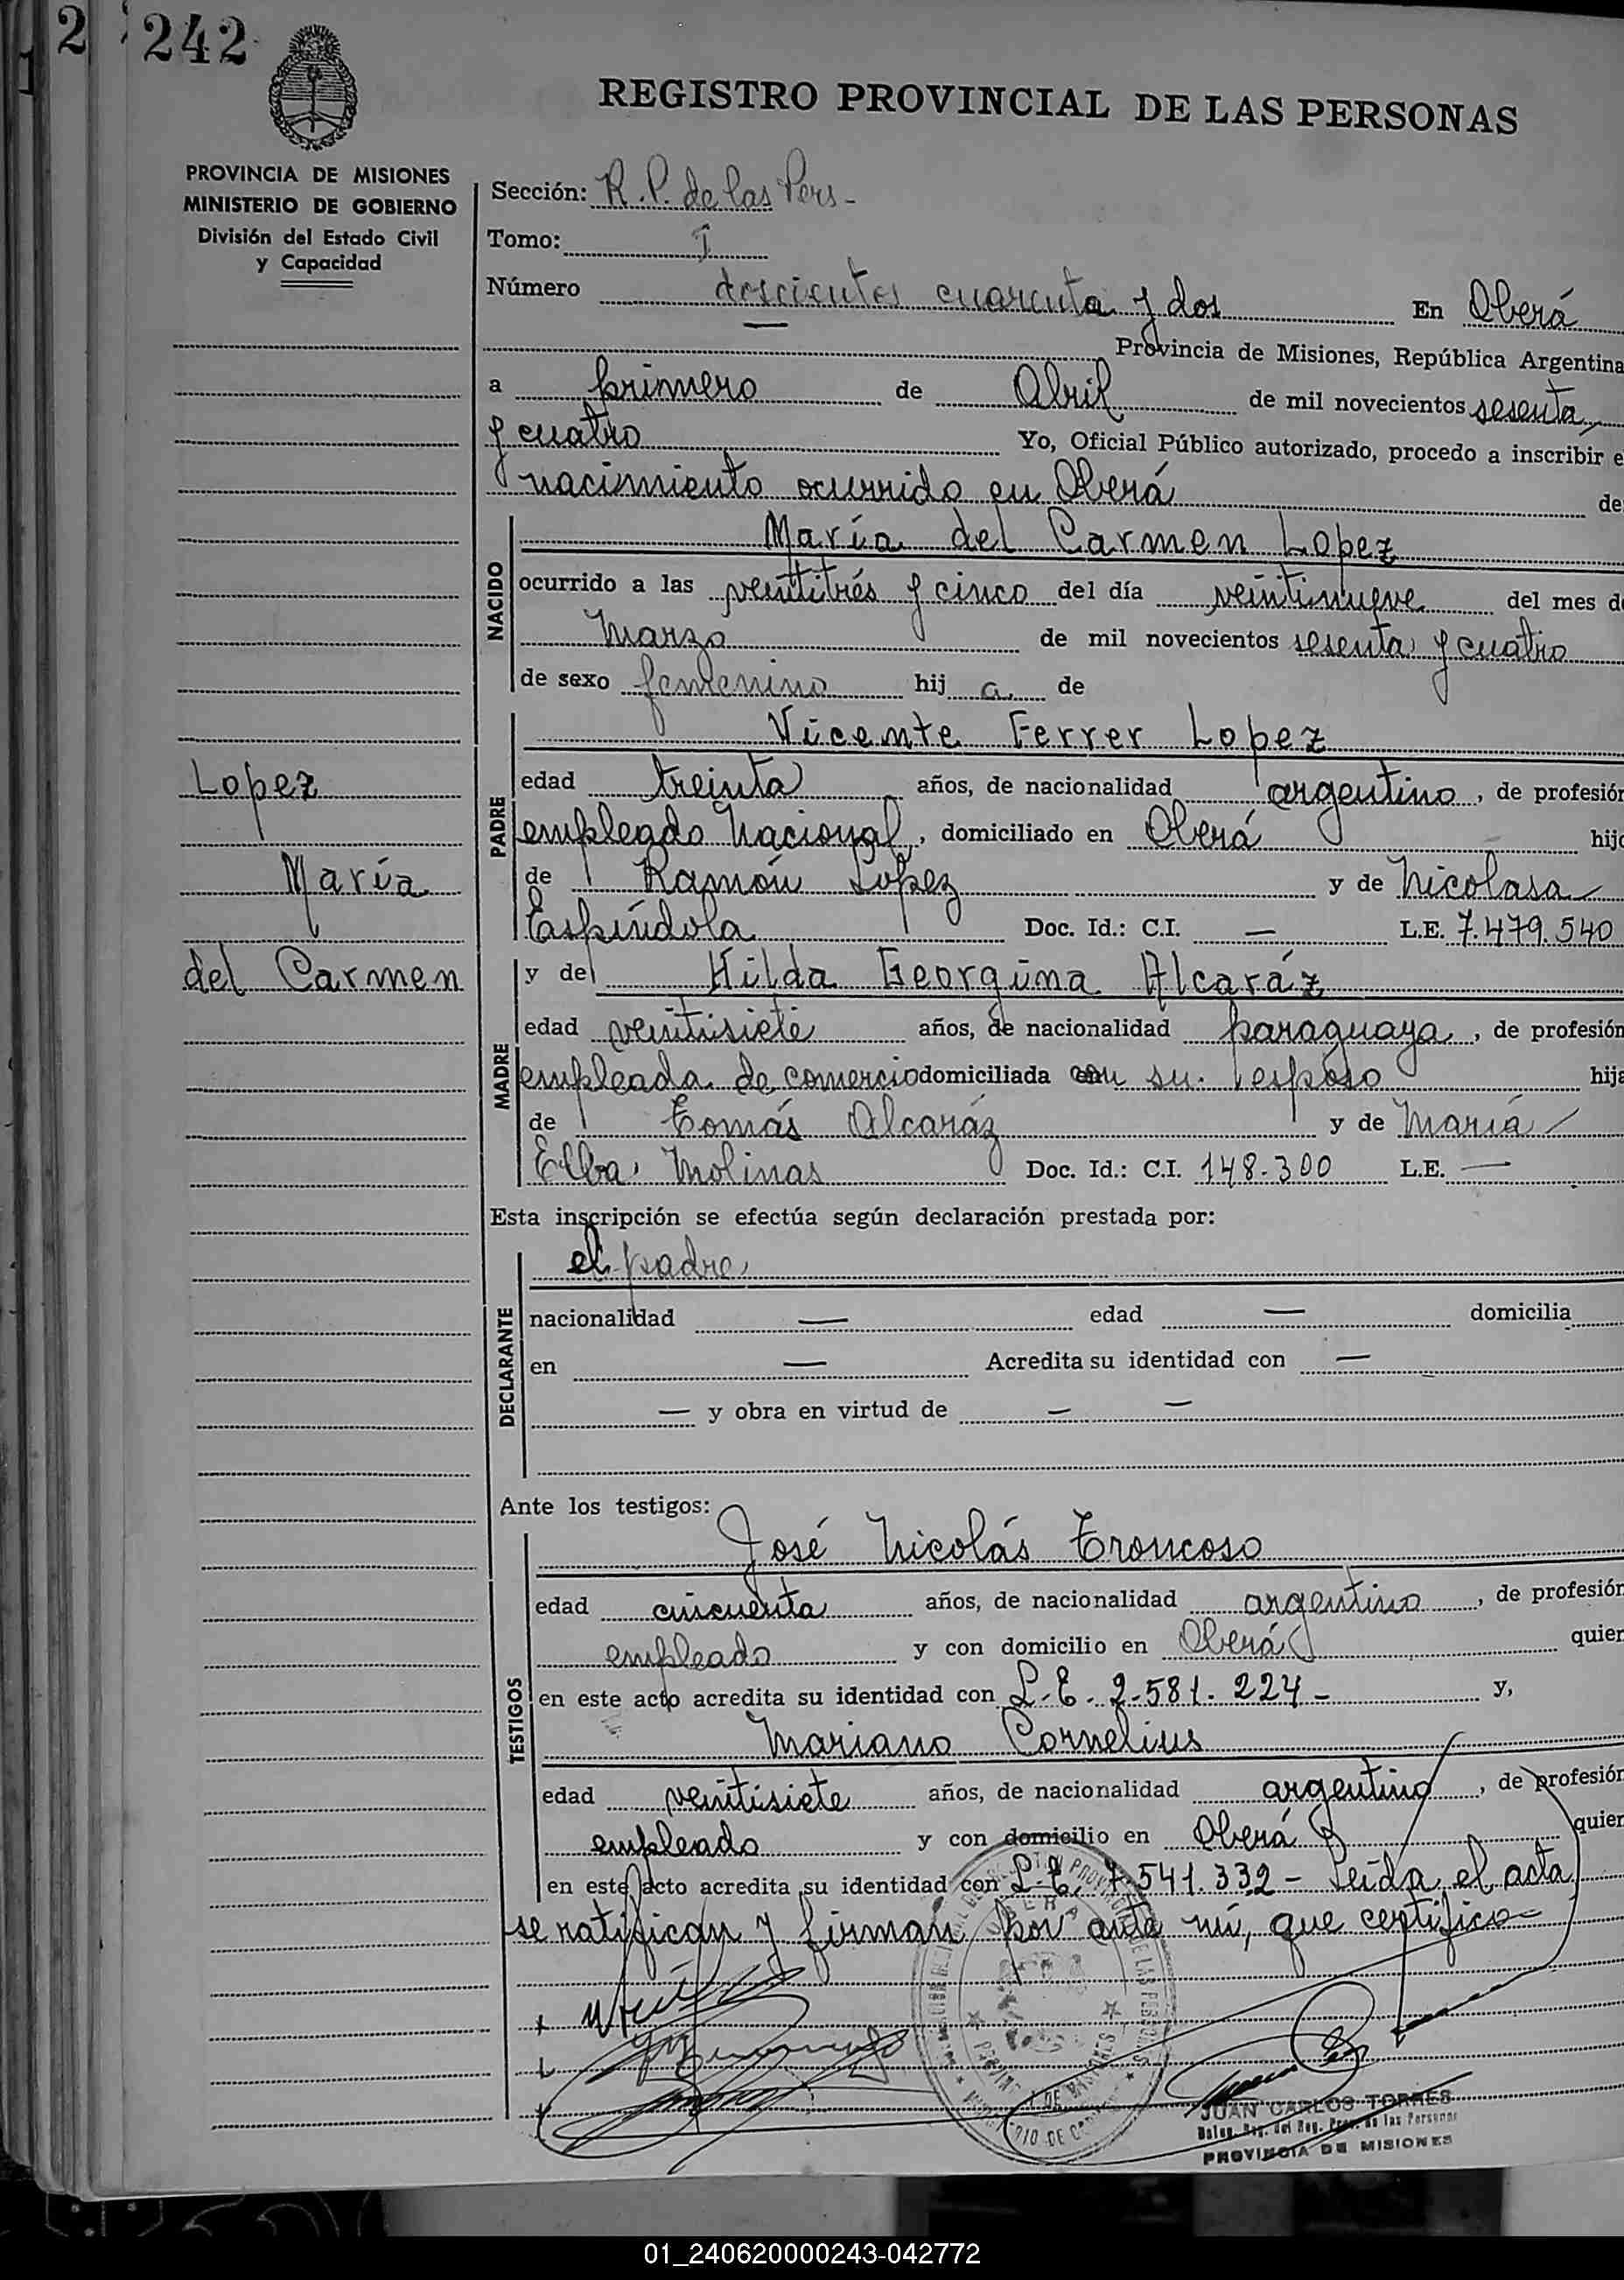 2 242
REGISTRO PROVINCIAL DE LAS PERSONAS
PROVINCIA DE MISIONES
MINISTERIO DE GOBIERNO
División del Estado Civil
y Capacidad
Sección: R.P. de las Pers -
Tomo: I
Número doscientos cuarenta y dos En Oberá
Provincia de Misiones, República Argentina
a primero de Abril de mil novecientos sesenta
y cuatro Yo, Oficial Público autorizado, procedo a inscribir e
nacimiento ocurrido en Oberá de
NACIDO
María del Carmen Lopez
ocurrido a las veintitrés y cinco del día veintinueve del mes de
Marzo de mil novecientos sesenta y cuatro
de sexo femenino hij a de
PADRE
Vicente Ferrer Lopez
edad treinta años, de nacionalidad argentino, de profesión
empleado Nacional, domiciliado en Oberá hijo
de Ramón Lopez y de Nicolasa
Espíndola Doc. Id.: C.I. — L.E. 7.479.540
Lopez
María
del Carmen
MADRE
y de Hilda Georgina Alcaráz
edad veintisiete años, de nacionalidad paraguaya, de profesión
empleada de comercio domiciliada con su esposo hija
de Tomás Alcaráz y de María
Elba Molinas Doc. Id.: C.I. 148.300 L.E. —
Esta inscripción se efectúa según declaración prestada por:
DECLARANTE
el padre
nacionalidad — edad — domicilia
en — Acredita su identidad con —
— y obra en virtud de — —
Ante los testigos:
TESTIGOS
José Nicolás Troncoso
edad cincuenta años, de nacionalidad argentino, de profesión
empleado y con domicilio en Oberá quien
en este acto acredita su identidad con L.E. 2.581.224 - y,
Mariano Cornelius
edad veintisiete años, de nacionalidad argentino, de profesión
empleado y con domicilio en Oberá quien
en este acto acredita su identidad con L.E. 7.541.332 - Leída el acta
se ratifican y firman por ante mí, que certifico -
JUAN CARLOS TORRES
Deleg. del Reg. Prov. de las Personas
PROVINCIA DE MISIONES
01_240620000243-042772